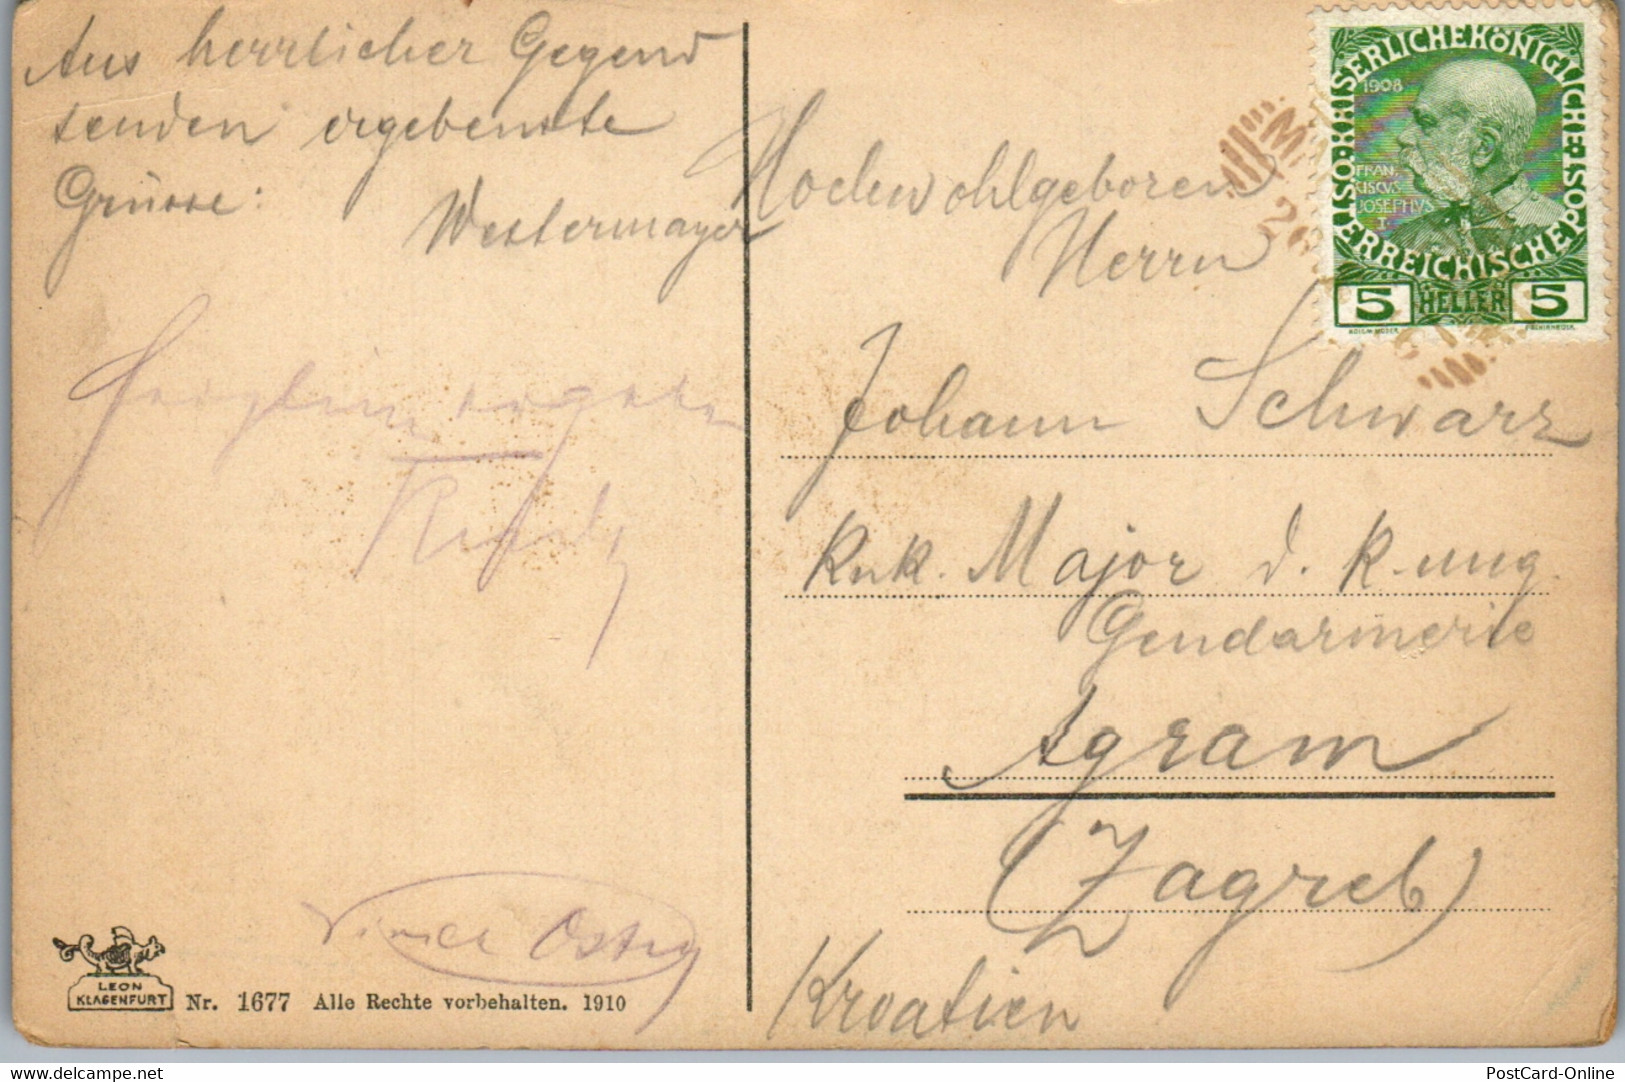 Aus herrlicher Gegend
senden ergebenste
Grüsse:
Westermayer
Ostry
LEON
KLAGENFURT
Nr. 1677 Alle Rechte vorbehalten. 1910
KAISERLICHEKÖNIGLICHE ÖSTERREICHISCHE POST
1908
FRAN
CISCVS
JOSEPHVS
I
5 HELLER 5
Hochwohlgeboren
Herrn
Johann Schwarz
K.u.K. Major d. K. ung.
Gendarmerie
Agram
(Zagreb)
Kroatien
delcampe.net
PostCard-Online